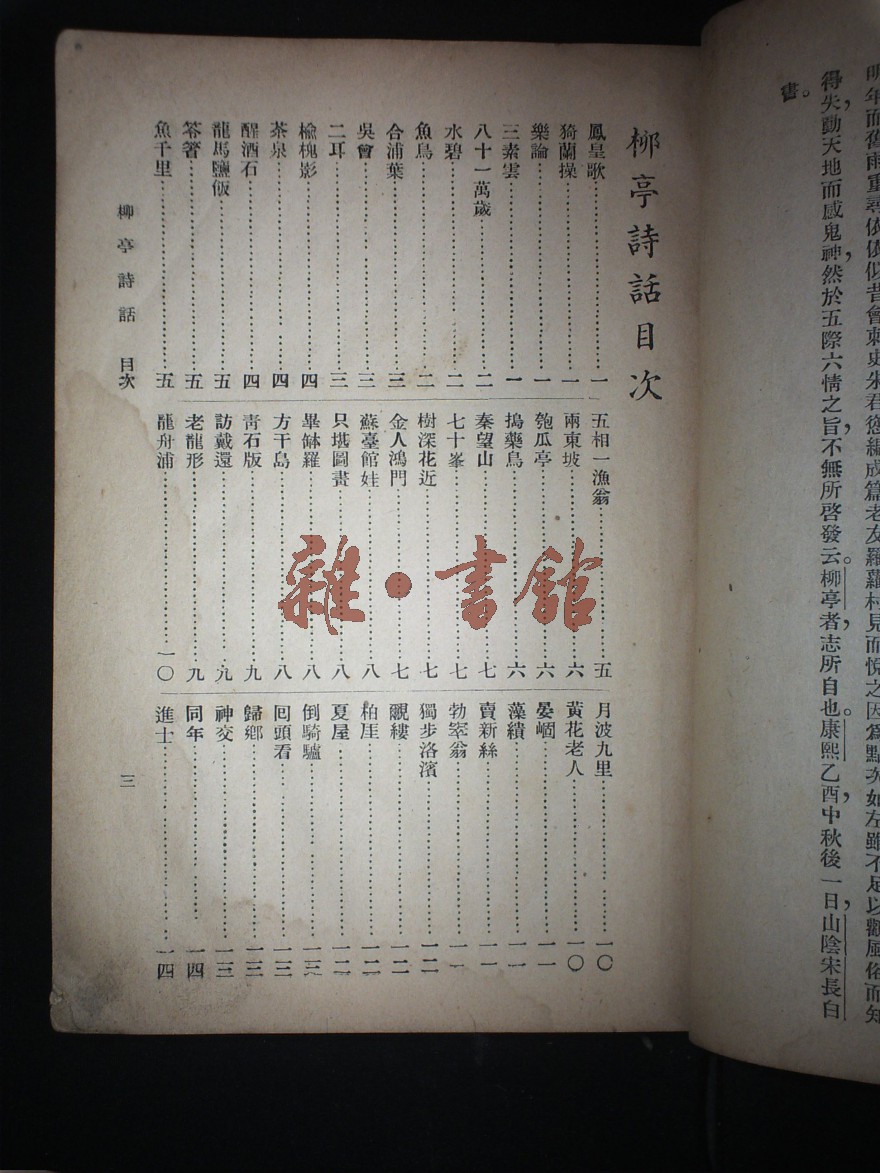 明年而舊雨重尋依依似昔會刺史朱君慫編成篇老友羅蘿村見而悅之因爲點次如左雖不足以觀風俗而知
得失,動天地而感鬼神,然於五際六情之旨,不無所啓發云。柳亭者,志所自也。康熙乙酉,中秋後一日,山陰宋長白
書。
柳亭詩話目次
鳳皇歌 一
猗蘭操 一
樂論 一
三素雲 一
八十一萬歲 二
水碧 二
魚鳥 二
合浦葉 三
吳會 三
二耳 三
檢槐影 四
茶泉 四
醒酒石 四
龍馬鹽飯 五
答箸 五
魚千里 五
五相一漁翁 五
兩東坡 六
匏瓜亭 六
搗藥鳥 六
秦望山 七
七十峯 七
樹深花近 七
金人鴻門 七
蘇臺館娃 八
只堪圖畫 八
畢缽羅 八
方干島 八
靑石版 九
訪戴還 九
老龍形 九
龍舟浦 一〇
月波九里 一〇
黃花老人 一〇
晏崓 一一
藻繢 一一
賣新絲 一一
勃窣翁 一一
獨步洛濱 一二
覼縷 一二
柏厓 一二
夏屋 一二
倒騎驢 一三
囘頭看 一三
歸鄉 一三
神交 一三
同年 一四
進士 一四
柳亭詩話 目次
三
雜·書館